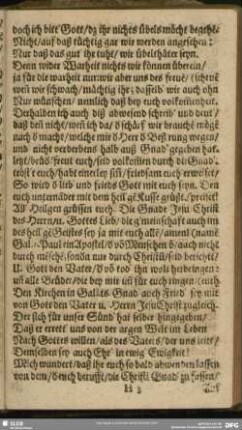 doch ich bitt Gott / dz ihr nichts übels möcht begehē
Nicht / auf daß tüchtig gar wir werden angesehen:
Nur daß das gut ihr thut / wie übelthäter seyn.
Denn wider Warheit nichts wir können überein /
ja für die warheit nur: wir aber uns des freuē /
weñ wir schwach / mächtig ihr: dasselb wir auch ohn
Nur wünschen / nemlich daß bey euch volkomenheit.
Derhalben ich auch diß abwesend schreib und deut /
daß deñ nicht / weñ ich da / schärf wir brauchē mögē
nach d macht / welche mir d Herr Besserung wegen /
und nicht verderbens halb auß Gnad gegeben hat.
letzt / brüd freut euch / seid volkomen durch die Gnad.
tröst euch / habt einerley siñ / friedsam euch erweiset /
So wird d lieb und frieds Gott mit euch seyn. Den
euch unternader mit dem heil gē Kusse grüßt / preiset!
All Heilgen grüssen euch. Die Gnade Jesu Christi
des Herrn / u. Gottes Lieb / die gmeinschaft auch itzt
des heil gē Geistes sey ja mit euch allē / amen!
Gal. Paul ein Apostel / võ Menschen aauch nicht
durch mēschē / sondn nur durch Christū / seid berichtt /
U. Gott den Vater / d võ tod ihn wolt herbringen:
uñ alle Brüder / die bey mir iñ für euch ringen /
Den Kirchen in Galatis Gnad auch Fried sey mit
von Gott den Vater u. Herrn Jesu Christ zugleich.
Der sich für unser Sünd hat selber hingegeben /
Daß er errett uns von der argen Welt im Leben
Nach Gottes willen / als des Vaters / der uns leitt /
Demselben sey auch Ehr in ewig Ewigkeit!
Mich wundert / daß ihr euch so bald abwenden lassen
von dem / d euch berufft / die Christi Gnad zu fassen /
SLUB
DFG